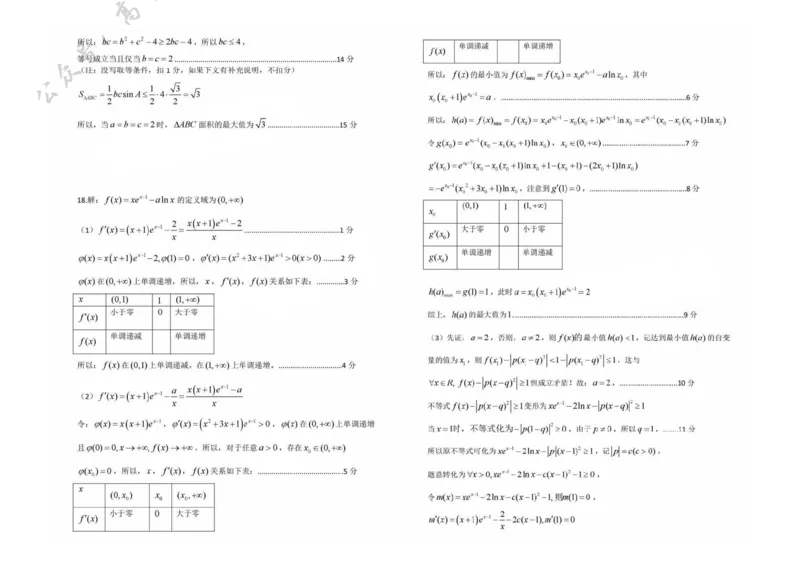 公众号:高
所以：bc=b²+c²−4≥2bc−4，所以bc≤4，
等号成立当且仅当b=c=2……14分
（注：没写取等条件，扣1分，如果下文有补充说明，不扣分）
S△ABC = 1/2 bcsin A ≤ 1/2·4·√3/2 = √3
所以，当a=b=c=2时，ΔABC面积的最大值为√3……15分
18.解：f(x)=xe^(x−1)−aln x的定义域为(0,+∞)
（1）f′(x)=(x+1)e^(x−1)−2/x=(x(x+1)e^(x−1)−2)/x……1分
φ(x)=x(x+1)e^(x−1)−2,φ(1)=0，φ′(x)=(x²+3x+1)e^(x−1)>0(x>0)……2分
φ(x)在(0,+∞)上单调递增，所以，x，f′(x)，f(x)关系如下表：……3分
x (0,1) 1 (1,+∞)
f′(x) 小于零 0 大于零
f(x) 单调递减 单调递增
所以：f(x)在(0,1)上单调递减，在(1,+∞)上单调递增。……4分
（2）f′(x)=(x+1)e^(x−1)−a/x=(x(x+1)e^(x−1)−a)/x
令：φ(x)=x(x+1)e^(x−1)，φ′(x)=(x²+3x+1)e^(x−1)>0，φ(x)在(0,+∞)上单调递增
且φ(0)=0,x→+∞,f(x)→+∞，所以，对于任意a>0，存在x₀∈(0,+∞)
φ(x₀)=0，所以，x，f′(x)，f(x)关系如下表：……5分
x (0,x₀) x₀ (x₀,+∞)
f′(x) 小于零 0 大于零
f(x) 单调递减 单调递增
所以：f(x)的最小值为f(x)min=f(x₀)=x₀e^(x₀−1)−aln x₀，其中
x₀(x₀+1)e^(x₀−1)=a，……6分
所以：h(a)=f(x)min=f(x₀)=x₀e^(x₀−1)−x₀(x₀+1)e^(x₀−1)ln x₀=e^(x₀−1)(x₀−x₀(x₀+1)ln x₀)
令g(x₀)=e^(x₀−1)(x₀−x₀(x₀+1)ln x₀)，x₀∈(0,+∞)……7分
g′(x₀)=e^(x₀−1)(x₀−x₀(x₀+1)ln x₀+1−(x₀+1)−(2x₀+1)ln x₀)
=−e^(x₀−1)(x₀²+3x₀+1)ln x₀，注意到g′(1)=0，……8分
x₀ (0,1) 1 (1,+∞)
g′(x₀) 大于零 0 小于零
g(x₀) 单调递增 单调递减
h(a)max=g(1)=1，此时a=x₀(x₀+1)e^(x₀−1)=2
综上，h(a)的最大值为1……9分
（3）先证：a=2，否则，a≠2，则f(x)的最小值h(a)<1，记达到最小值h(a)的自变
量的值为x₁，则f(x₁)−|p(x₁−q)²|<1−|p(x₁−q)²|≤1，这与
∀x∈R, f(x)−|p(x−q)²|≥1恒成立矛盾！故：a=2，……10分
不等式f(x)−|p(x−q)²|≥1变形为xe^(x−1)−2ln x−|p(x−q)²|≥1
当x=1时，不等式化为−|p(1−q)²|≥0，由于p≠0，所以q=1，……11分
所以原不等式可化为xe^(x−1)−2ln x−|p|(x−1)²≥1，记|p|=c(c>0)，
题意转化为∀x>0,xe^(x−1)−2ln x−c(x−1)²−1≥0，
令m(x)=xe^(x−1)−2ln x−c(x−1)²−1,则m(1)=0，
m′(x)=(x+1)e^(x−1)−2/x−2c(x−1),m′(1)=0